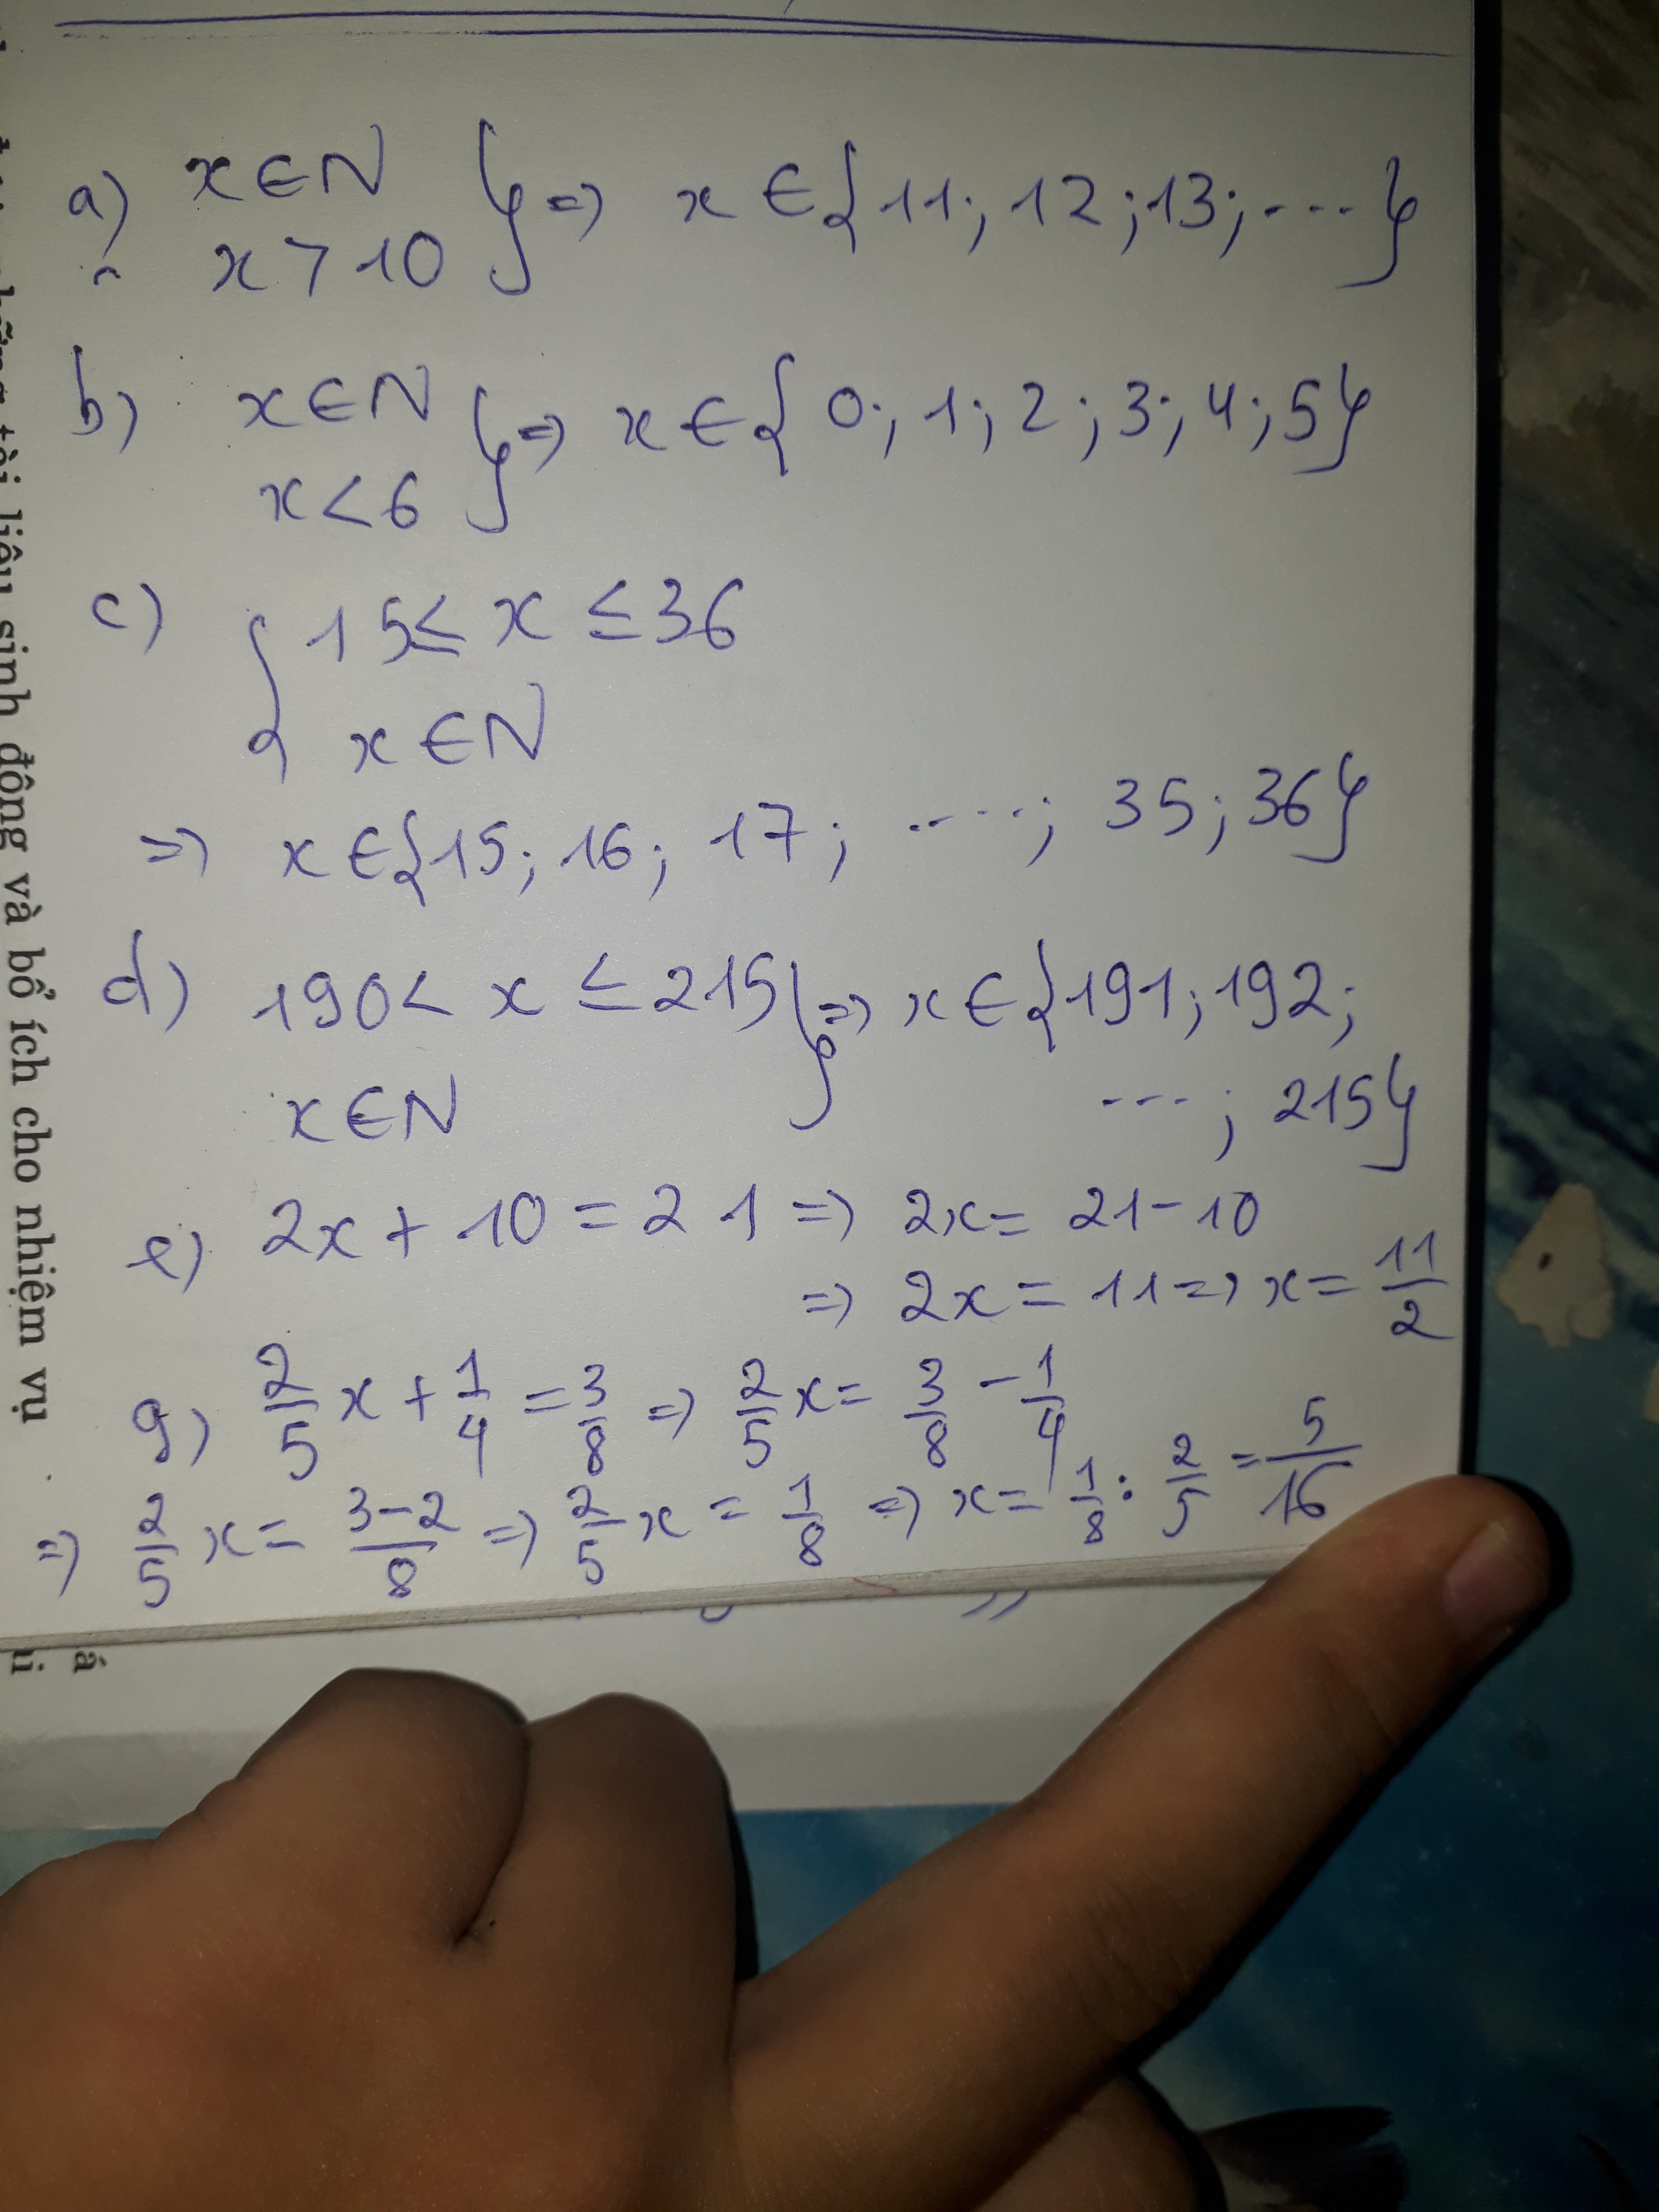 a) x ∈ N
x > 10 } => x ∈ {11; 12; 13; ...}
b) x ∈ N
x < 6 } => x ∈ {0; 1; 2; 3; 4; 5}
c) { 15 ≤ x ≤ 36
x ∈ N
=> x ∈ {15; 16; 17; .....; 35; 36}
d) 190 < x ≤ 215 } => x ∈ {191; 192;
x ∈ N ...; 215}
e) 2x + 10 = 21 => 2x = 21 - 10
=> 2x = 11 => x = 11/2
g) 2/5 x + 1/4 = 3/8 => 2/5 x = 3/8 - 1/4
=> 2/5 x = 3-2/8 => 2/5 x = 1/8 => x = 1/8 : 2/5 = 5/16
liệu sinh động và bổ ích cho nhiệm vụ